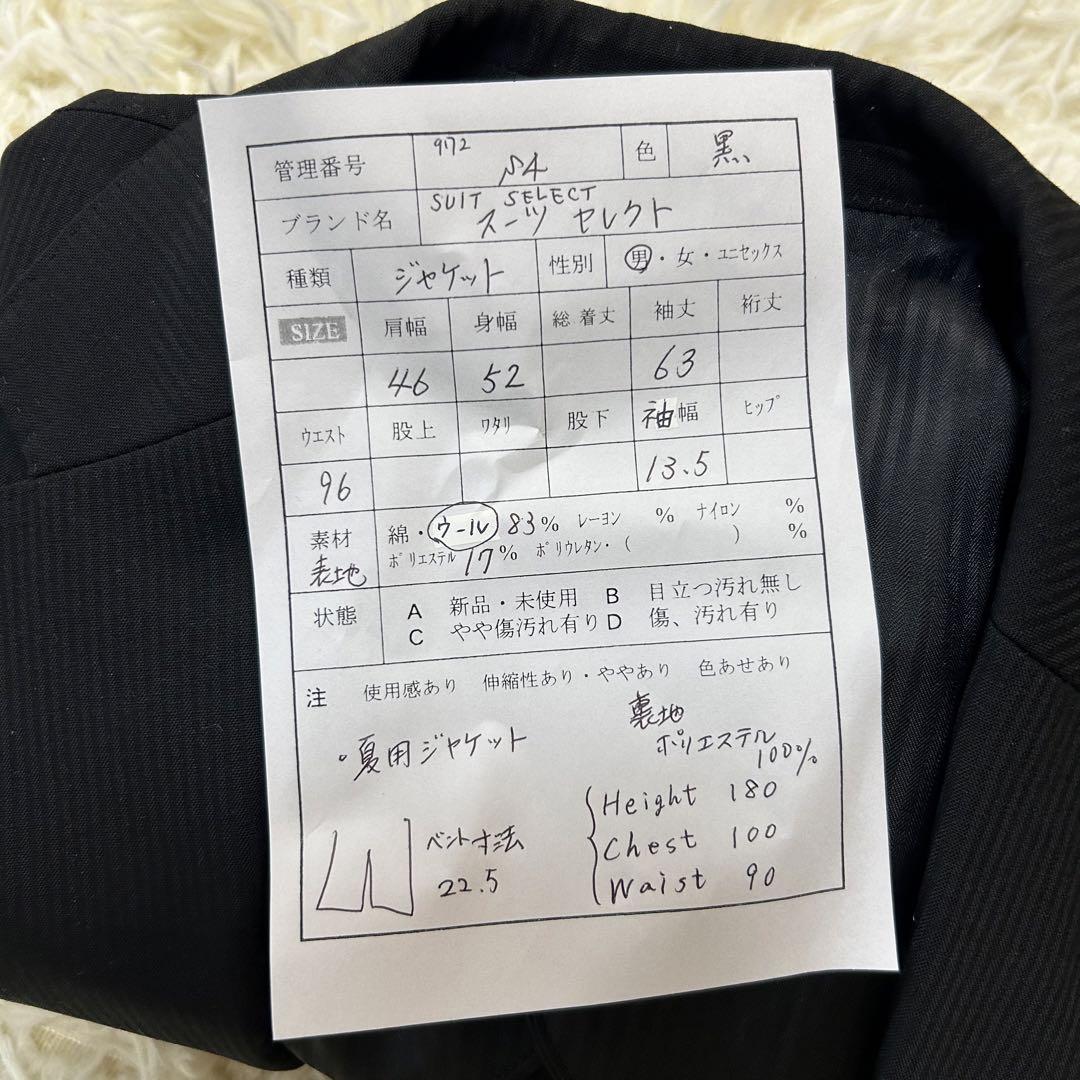 管理番号 9172 S4 色 黒
ブランド名 SUIT SELECT
スーツ セレクト
種類 ジャケット 性別 男・女・ユニセックス
SIZE 肩幅 身幅 総着丈 袖丈 裄丈
46 52 63
ウエスト 股上 ワタリ 股下 袖幅 ヒップ
96 13.5
素材 綿・ウール 83% レーヨン % ナイロン %
表地 ポリエステル 17% ポリウレタン・( ) %
状態 A 新品・未使用 B 目立つ汚れ無し
C やや傷汚れ有り D 傷、汚れ有り
注 使用感あり 伸縮性あり・ややあり 色あせあり
・夏用ジャケット
裏地
ポリエステル
100%
ベント寸法
22.5
Height 180
Chest 100
Waist 90